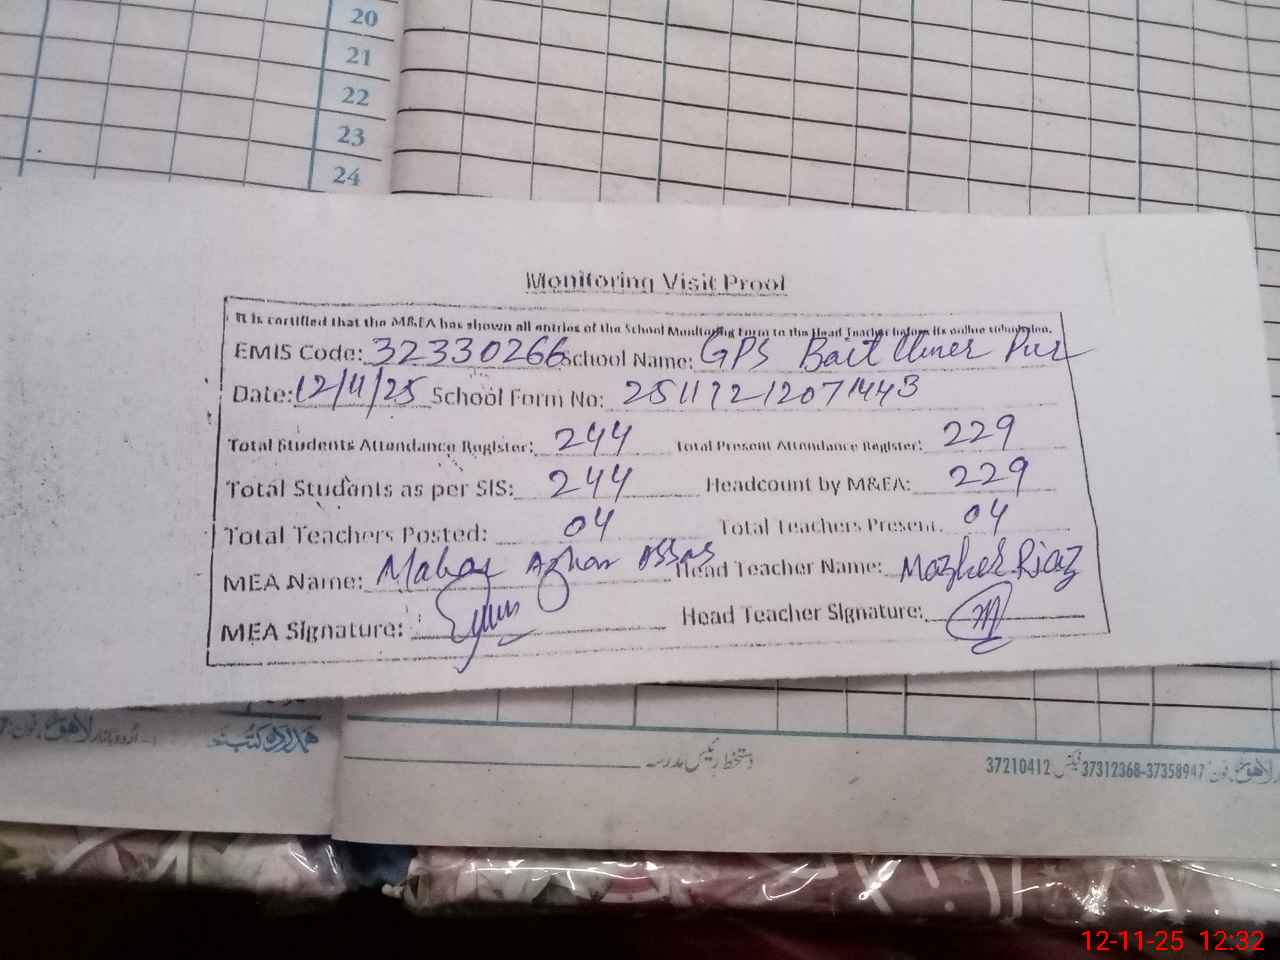 20
21
22
23
24
Monitoring Visit Proof
It is certified that the M&EA has shown all entries of the School Monitoring Form to the Head Teacher before its online submission.
EMIS Code: 32330266 School Name: GPS Bait Umer Pur
Date: 12/11/25 School Form No: 25111212071443
Total Students Attendance Register: 244 Total Present Attendance Register: 229
Total Students as per SIS: 244 Headcount by M&EA: 229
Total Teachers Posted: 04 Total Teachers Present. 04
MEA Name: Mahar Azhar Head Teacher Name: Mazher Riaz
MEA Signature: Head Teacher Signature:
دستخط رئیس مدرسہ
37210412 فیکس 37312368-37358947 فون: لاہور
12-11-25 12:32